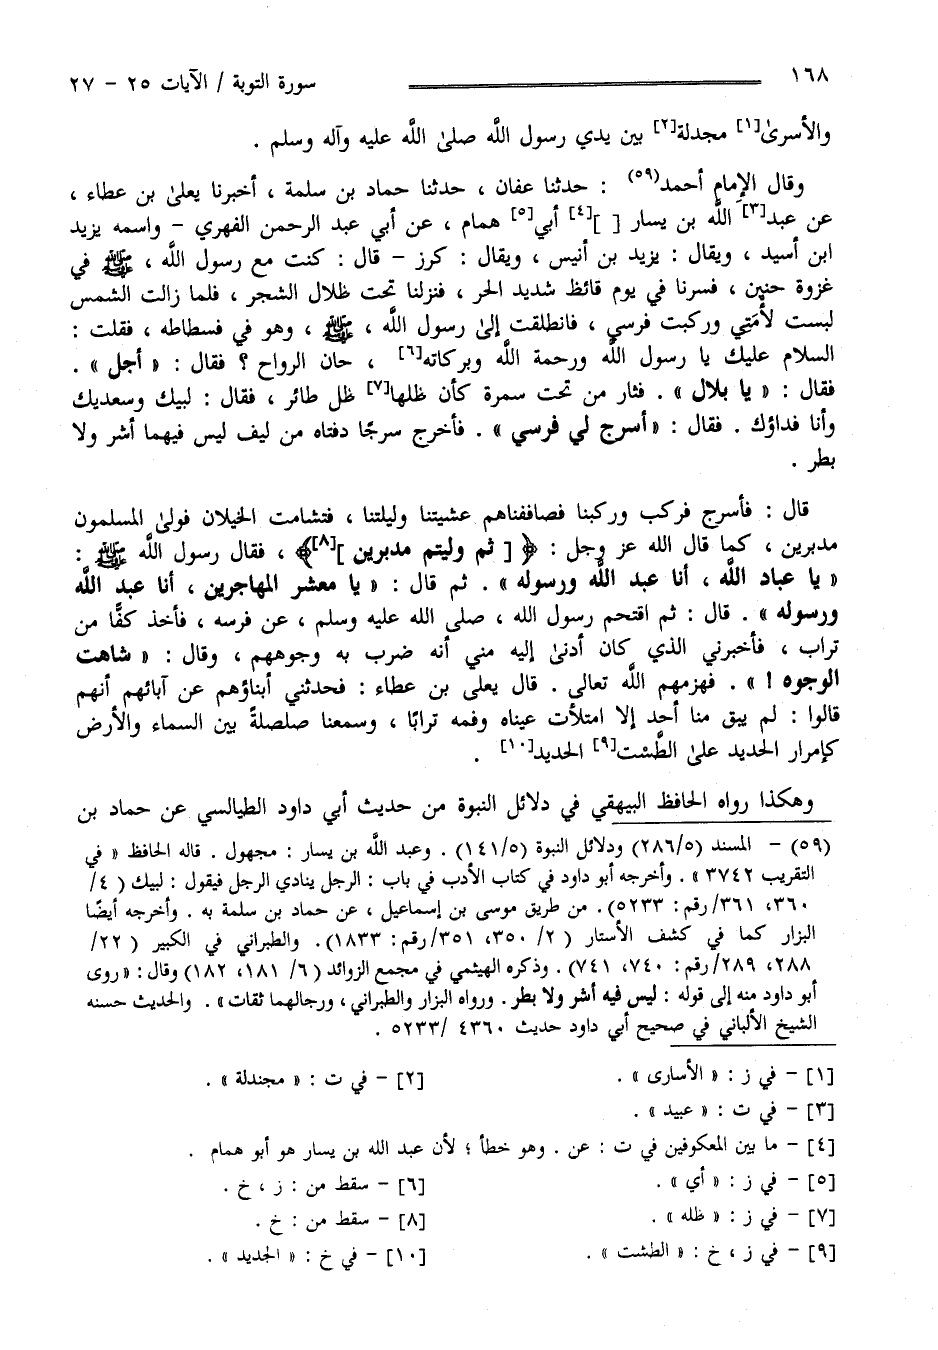 ١٦٨ سورة التوبة / الآيات ٢٥ - ٢٧
والأسرىٰ[١] مجدلة[٢] بين يدي رسول اللَّه صلىٰ اللَّه عليه وآله وسلم .
وقال الإمام أحمد(٥٩) : حدثنا عفان ، حدثنا حماد بن سلمة ، أخبرنا يعلىٰ بن عطاء ،
عن عبد[٣] اللَّه بن يسار [ ][٤] أبي[٥] همام ، عن أبي عبد الرحمن الفهري – واسمه يزيد
ابن أسيد ، ويقال : يزيد بن أنيس ، ويقال : كرز – قال : كنت مع رسول اللَّه ، ﷺ في
غزوة حنين ، فسرنا في يوم قائظ شديد الحر ، فنزلنا تحت ظلال الشجر ، فلما زالت الشمس
لبست لأُمَتِي وركبت فرسي ، فانطلقت إلىٰ رسول اللَّه ، ﷺ ، وهو في فسطاطه ، فقلت :
السلام عليك يا رسول اللَّه ورحمة اللَّه وبركاته[٦] ، حان الرواح ؟ فقال : « أجل » .
فقال : « يا بلال » . فثار من تحت سمرة كأن ظلها[٧] ظل طائر ، فقال : لبيك وسعديك
وأنا فداؤك . فقال : « أسرج لي فرسي » . فأخرج سرجًا دفتاه من ليف ليس فيهما أشر ولا
بطر .
قال : فأسرج فركب وركبنا فصاففناهم عشيتنا وليلتنا ، فتشامت الخيلان فولىٰ المسلمون
مدبرين ، كما قال الله عز وجل : ﴿ [ ثم وليتم مدبرين ][٨]﴾ ، فقال رسول اللَّه ﷺ :
« يا عباد اللَّه ، أنا عبد اللَّه ورسوله » . ثم قال : « يا معشر المهاجرين ، أنا عبد اللَّه
ورسوله » . قال : ثم اقتحم رسول الله ، صلى الله عليه وسلم ، عن فرسه ، فأخذ كفًّا من
تراب ، فأخبرني الذي كان أدنىٰ إليه مني أنه ضرب به وجوههم ، وقال : « شاهت
الوجوه ! » . فهزمهم اللَّه تعالى . قال يعلى بن عطاء : فحدثني أبناؤهم عن آبائهم أنهم
قالوا : لم يبق منا أحد إلا امتلأت عيناه وفمه ترابًا ، وسمعنا صلصلةً بين السماء والأرض
كإمرار الحديد علىٰ الطَّشت[٩] الحديد[١٠] .
وهكذا رواه الحافظ البيهقي في دلائل النبوة من حديث أبي داود الطيالسي عن حماد بن
(٥٩) – المسند (٢٨٦/٥) ودلائل النبوة (١٤١/٥) . وعبد اللَّه بن يسار : مجهول . قاله الحافظ « في
التقريب ٣٧٤٢ » . وأخرجه أبو داود في كتاب الأدب في باب : الرجل ينادي الرجل فيقول : لبيك ( ٤/
٣٦٠، ٣٦١/رقم : ٥٢٣٣). من طريق موسى بن إسماعيل ، عن حماد بن سلمة به . وأخرجه أيضًا
البزار كما في كشف الأستار ( ٢/ ٣٥٠، ٣٥١/رقم : ١٨٣٣). والطبراني في الكبير ( ٢٢/
٢٨٨، ٢٨٩/رقم : ٧٤٠، ٧٤١). وذكره الهيثمي في مجمع الزوائد ( ٦/ ١٨١، ١٨٢) وقال : « روى
أبو داود منه إلى قوله : ليس فيه أشر ولا بطر . ورواه البزار والطبراني ، ورجالهما ثقات » . والحديث حسنه
الشيخ الألباني في صحيح أبي داود حديث ٤٣٦٠ /٥٢٣٣ .
[١] – في ز : « الأسارى » . [٢] – في ت : « مجندلة » .
[٣] – في ت : « عبيد » .
[٤] – ما بين المعكوفين في ت : عن . وهو خطأ ؛ لأن عبد الله بن يسار هو أبو همام .
[٥] – في ز : « أي » . [٦] – سقط من : ز ، خ .
[٧] – في ز : « ظله » . [٨] – سقط من : خ .
[٩] – في ز ، خ : « الطشت » . [١٠] – في خ : « الجديد » .